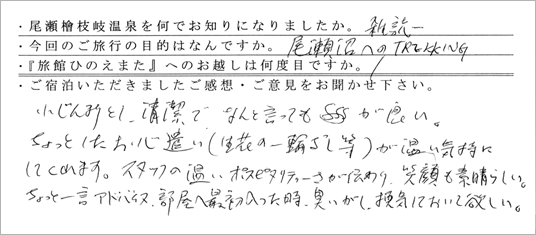 ・尾瀬檜枝岐温泉を何でお知りになりましたか。 雑誌
・今回のご旅行の目的はなんですか。 尾瀬沼へのTREKKING
・『旅館ひのえまた』へのお越しは何度目ですか。
・ご宿泊いただきましたご感想・ご意見をお聞かせ下さい。
小じんまりとし、清潔で なんと言っても が良い。
ちょっとしたお心遣い(生花の一輪ざし等)が温い気持に
してくれます。スタッフの温いホスピタリティーさが伝わり、笑顔も素晴らしい。
ちょっと一言アドバイス、部屋へ最初入った時、臭いがし、換気しておいて欲しい。